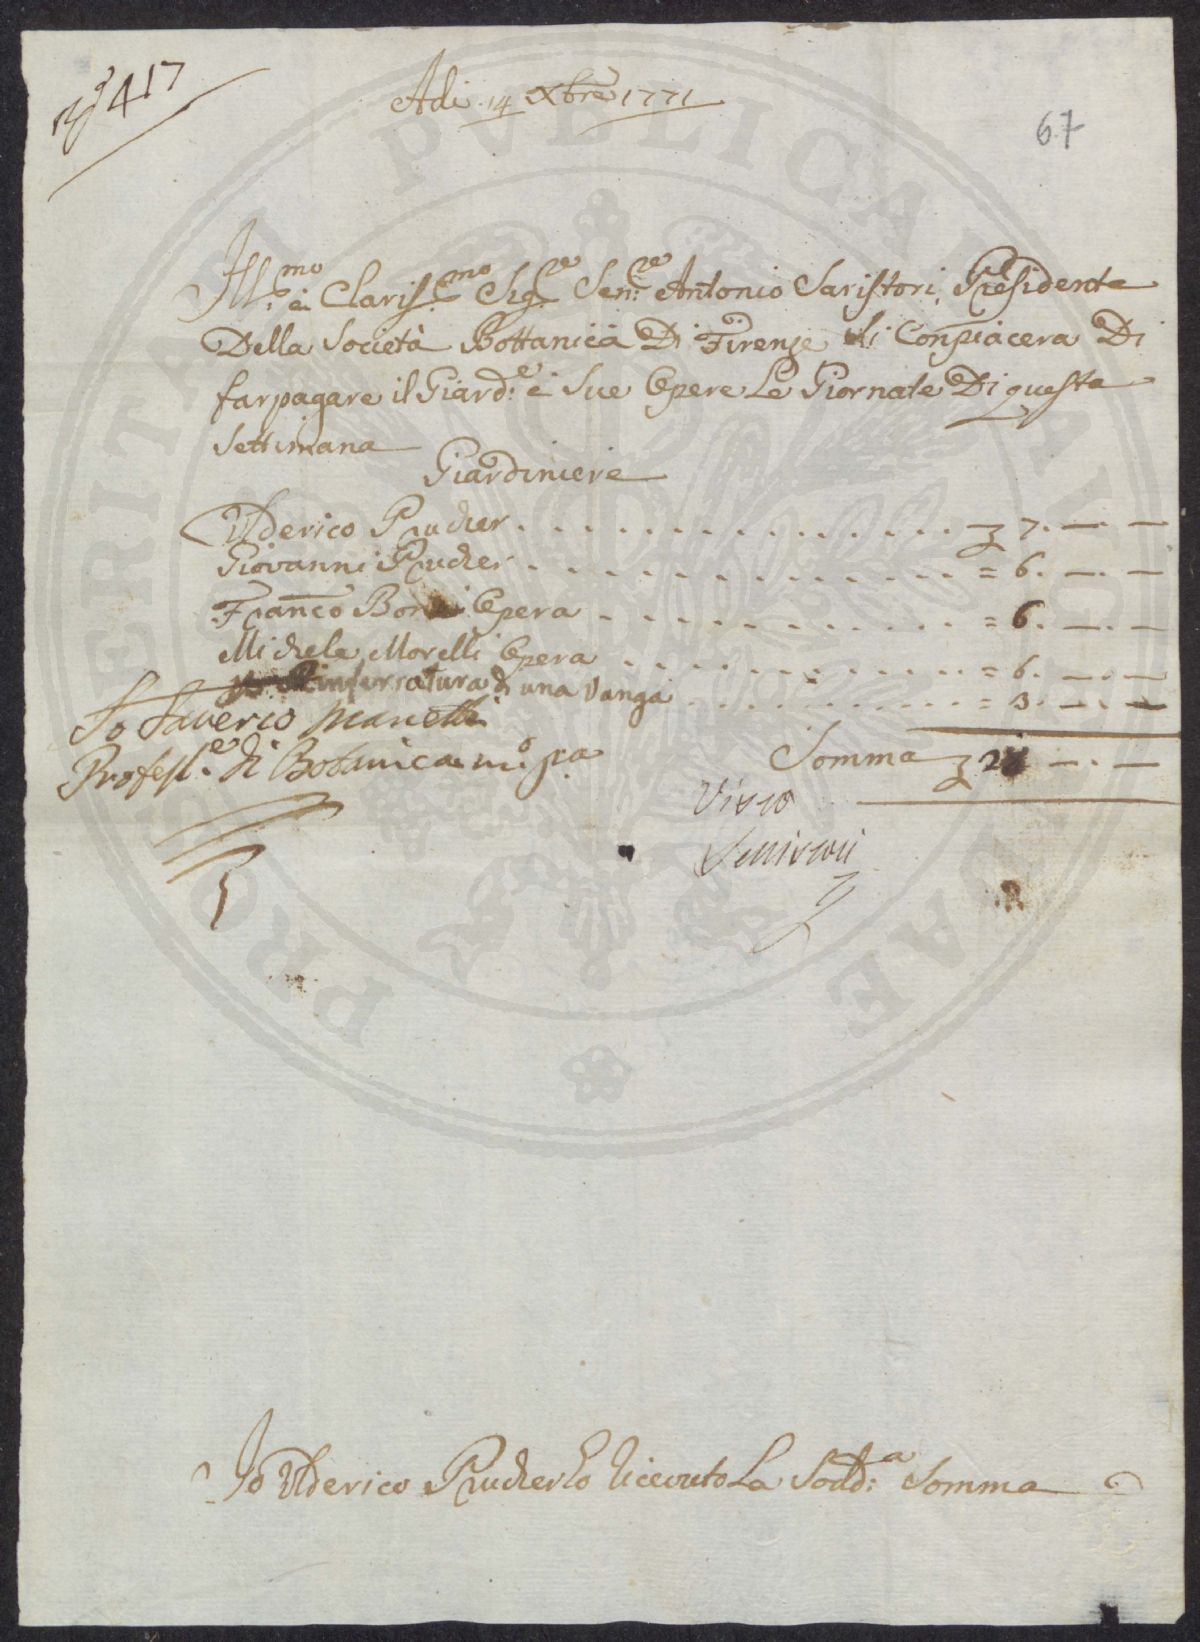 N.º 417
Adi 14 Xbre 1771
67
Ill.mo è Claris.mo Sig.re Sen.re Antonio Saristori, Presidente
Della Società Bottanica Di Firenze li Conpiacera Di
far pagare il Giard.e è Sue Opere Le Giornate Di questa
Settimana
Giardiniere
Ulderico Prucher . . . . . . . . . . . . . . 7. —. —
Giovanni Prucher . . . . . . . . . . . . . . = 6. —. —
Franco Opera . . . . . . . . . . . . = 6. —. —
Michele Morelli Opera . . . . . . . . . . . . = 6. —. —
Rinferratura di una Vanga . . . . . . . . . . = 3. —. —
Io Saverio Manetti
Profess.e di Botanica m.o pa
Somma 28 —. —
Visto
Io Ulderico Prucher ò riceuto La Sodd.a Somma
PRO
ERITATI
PVBLICAE
AVGVSTAE